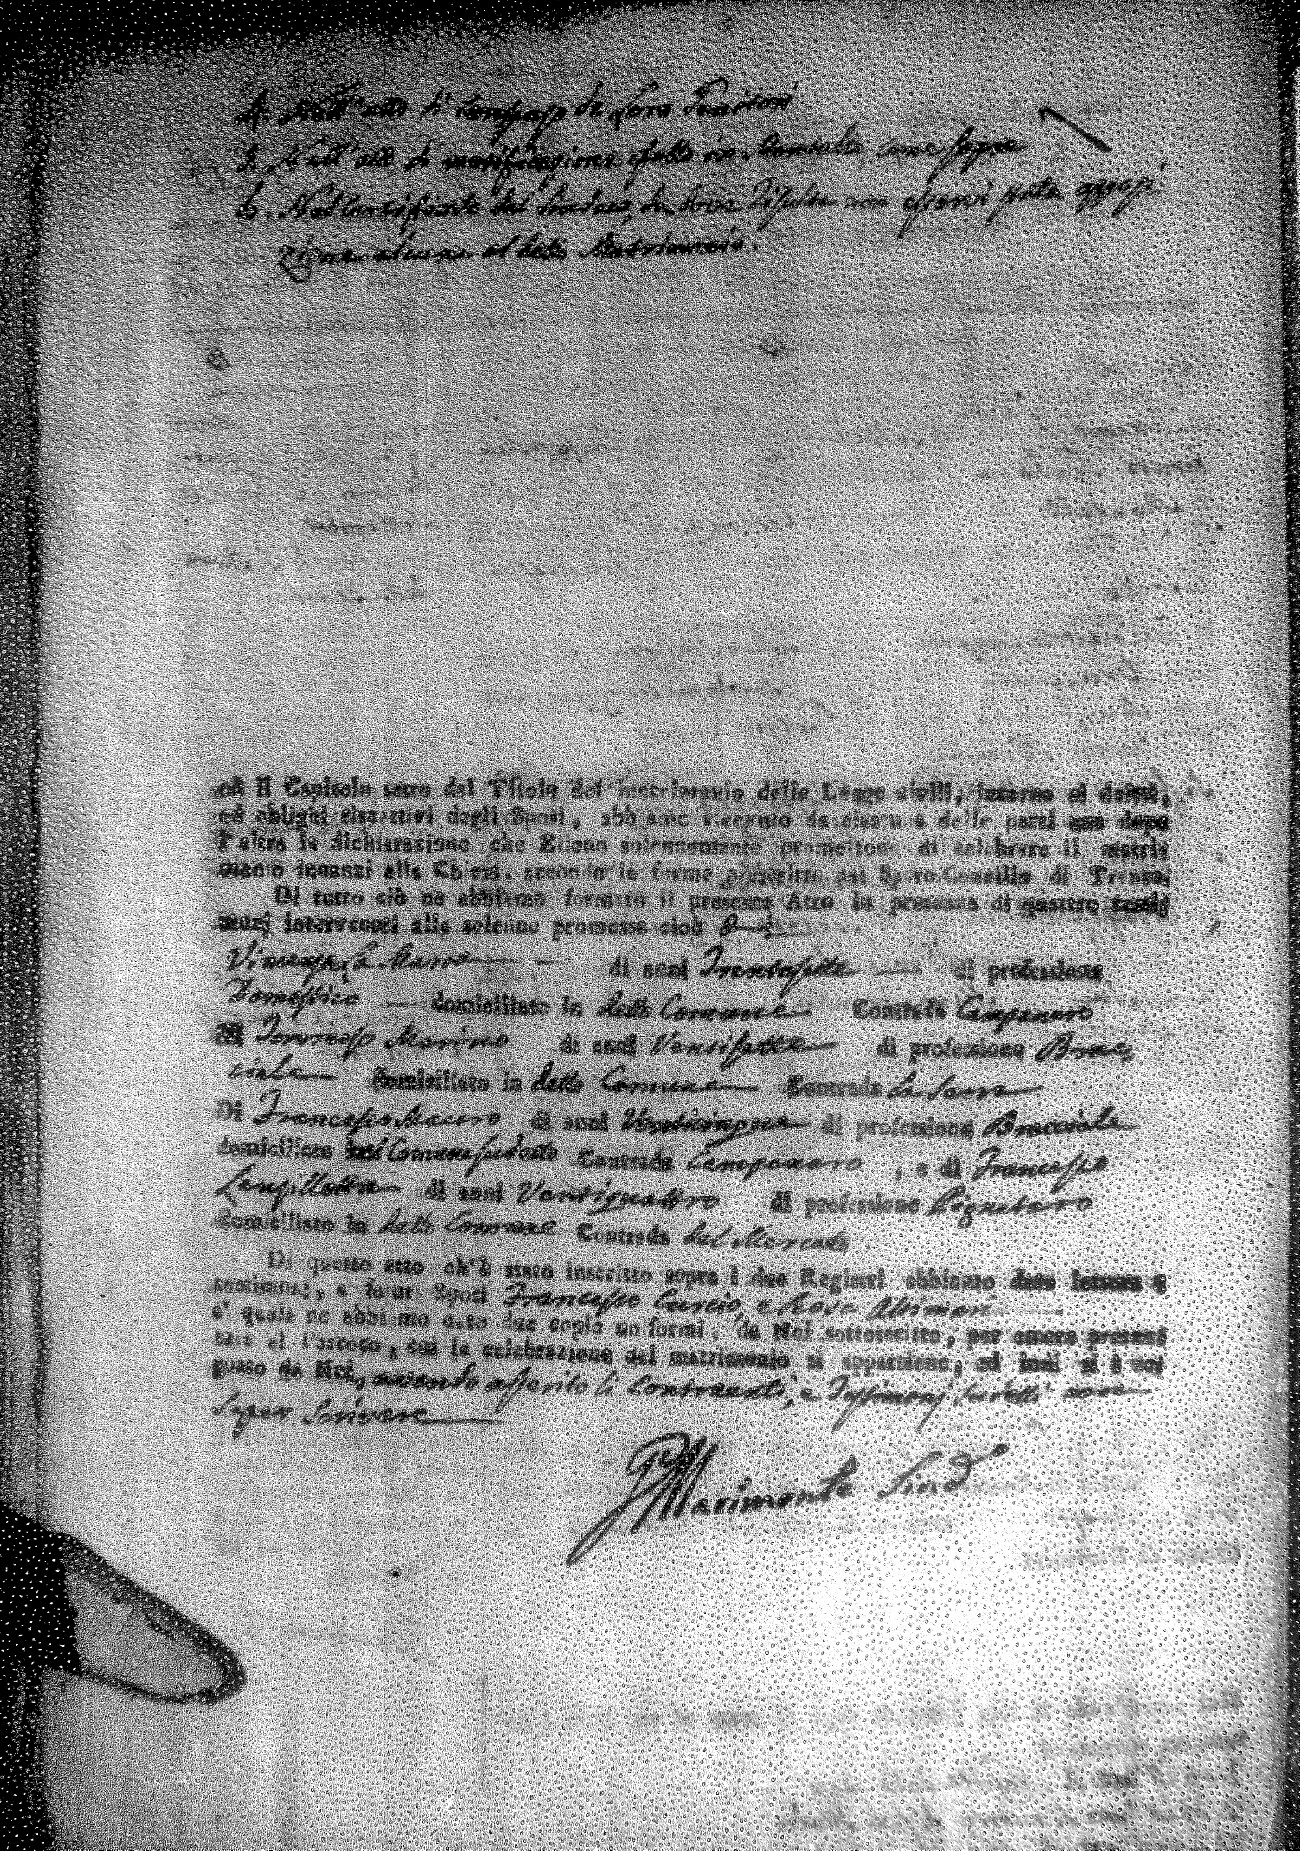 4. Nell'atto di
5. Nell'atto di notificazione fatta in Comune come sopra
6. Nel Certificato del Sindaco di non esservi stata opposi
zione alcuna al detto Matrimonio.
ed il Capitolo sesto del Titolo del matrimonio delle Legge civili, intorno ai dritti,
ed obligi rispettivi degli Sposi, abbiamo ricevuto da ciascuna delle parti una dopo
l'altra la dichiarazione che Eglino solennemente promettono di celebrare il matri
monio innanzi alla Chiesa, secondo le forme prescritte dal Sacro Concilio di Trento.
Di tutto ciò ne abbiamo formato il presente Atto in presenza di quattro testi
monj intervenuti alla solenne promessa cioè Di
Vincenzo di anni Trentasette di professione
Domestico domiciliato in detto Comune Contrada Campanaro
Di Tommaso Marino di anni Ventisette di professione Brac
ciale domiciliato in detto Comune Contrada
Di Francesco di anni Venticinque di professione Bracciale
domiciliato nel Comune sudetto Contrada Campanaro , e di Francesco
di anni Ventiquattro di professione Pignataro
domiciliato in detto Comune Contrada del Mercato
Di questo atto ch'è stato inscritto sopra i due Registri abbiamo dato lettura a'
testimonj, e futuri Sposi Francesco Curcio, e Rosa
a' quale ne abbiamo dato due copie uniformi, da Noi sottoscritte, per essere presen
tate al Parroco, cui la celebrazione del matrimonio si appartiene, ed indi si è
da Noi, avendo asserito li contraenti, e Testimonj sudetti non
saper scrivere
Marimonte Sind.